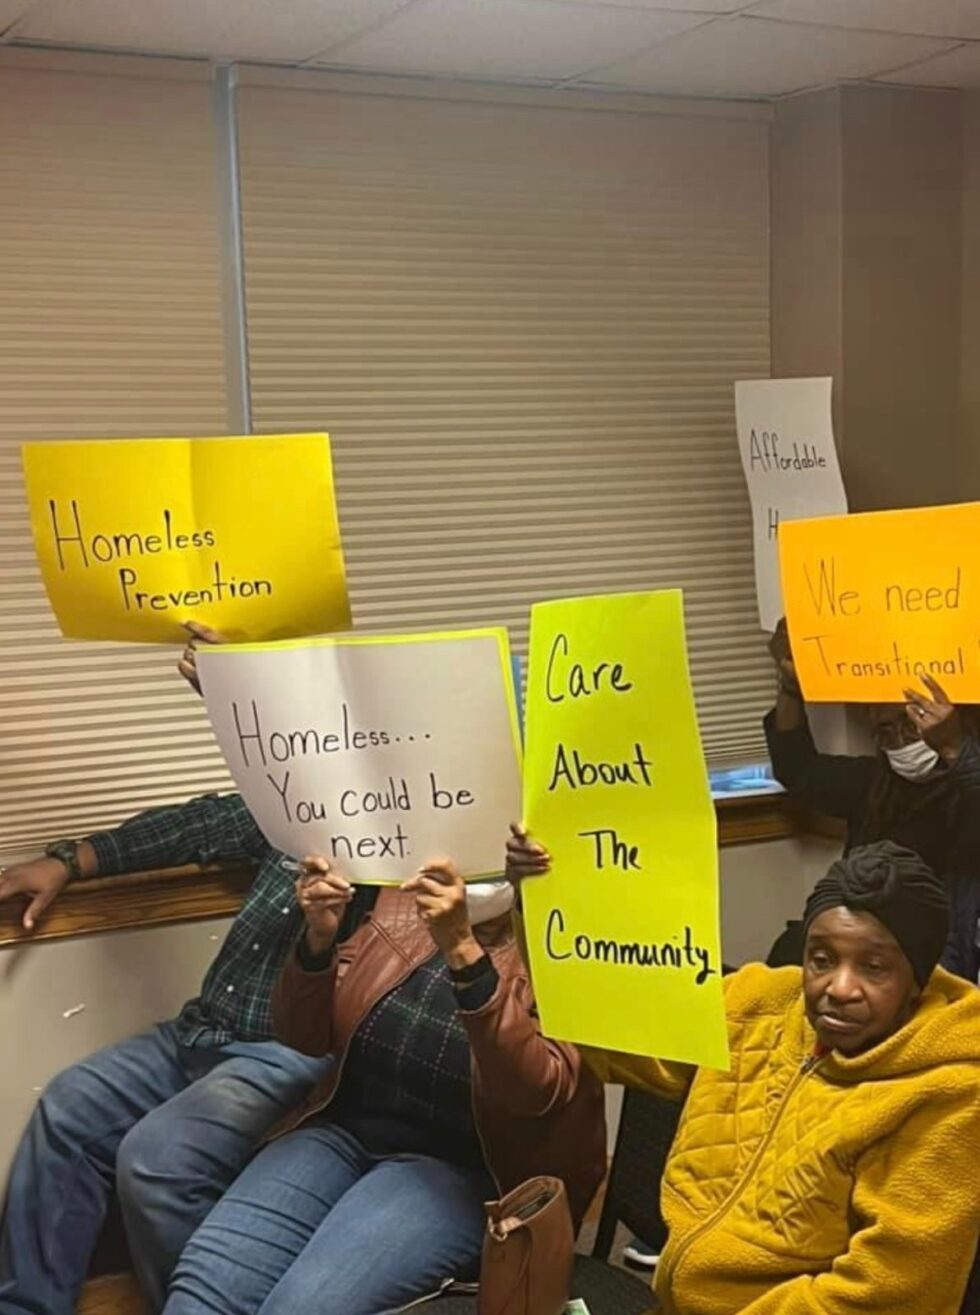 Homeless
Prevention
Homeless...
You could be
next.
Care
About
The
Community
Affordable
We need
Transitional